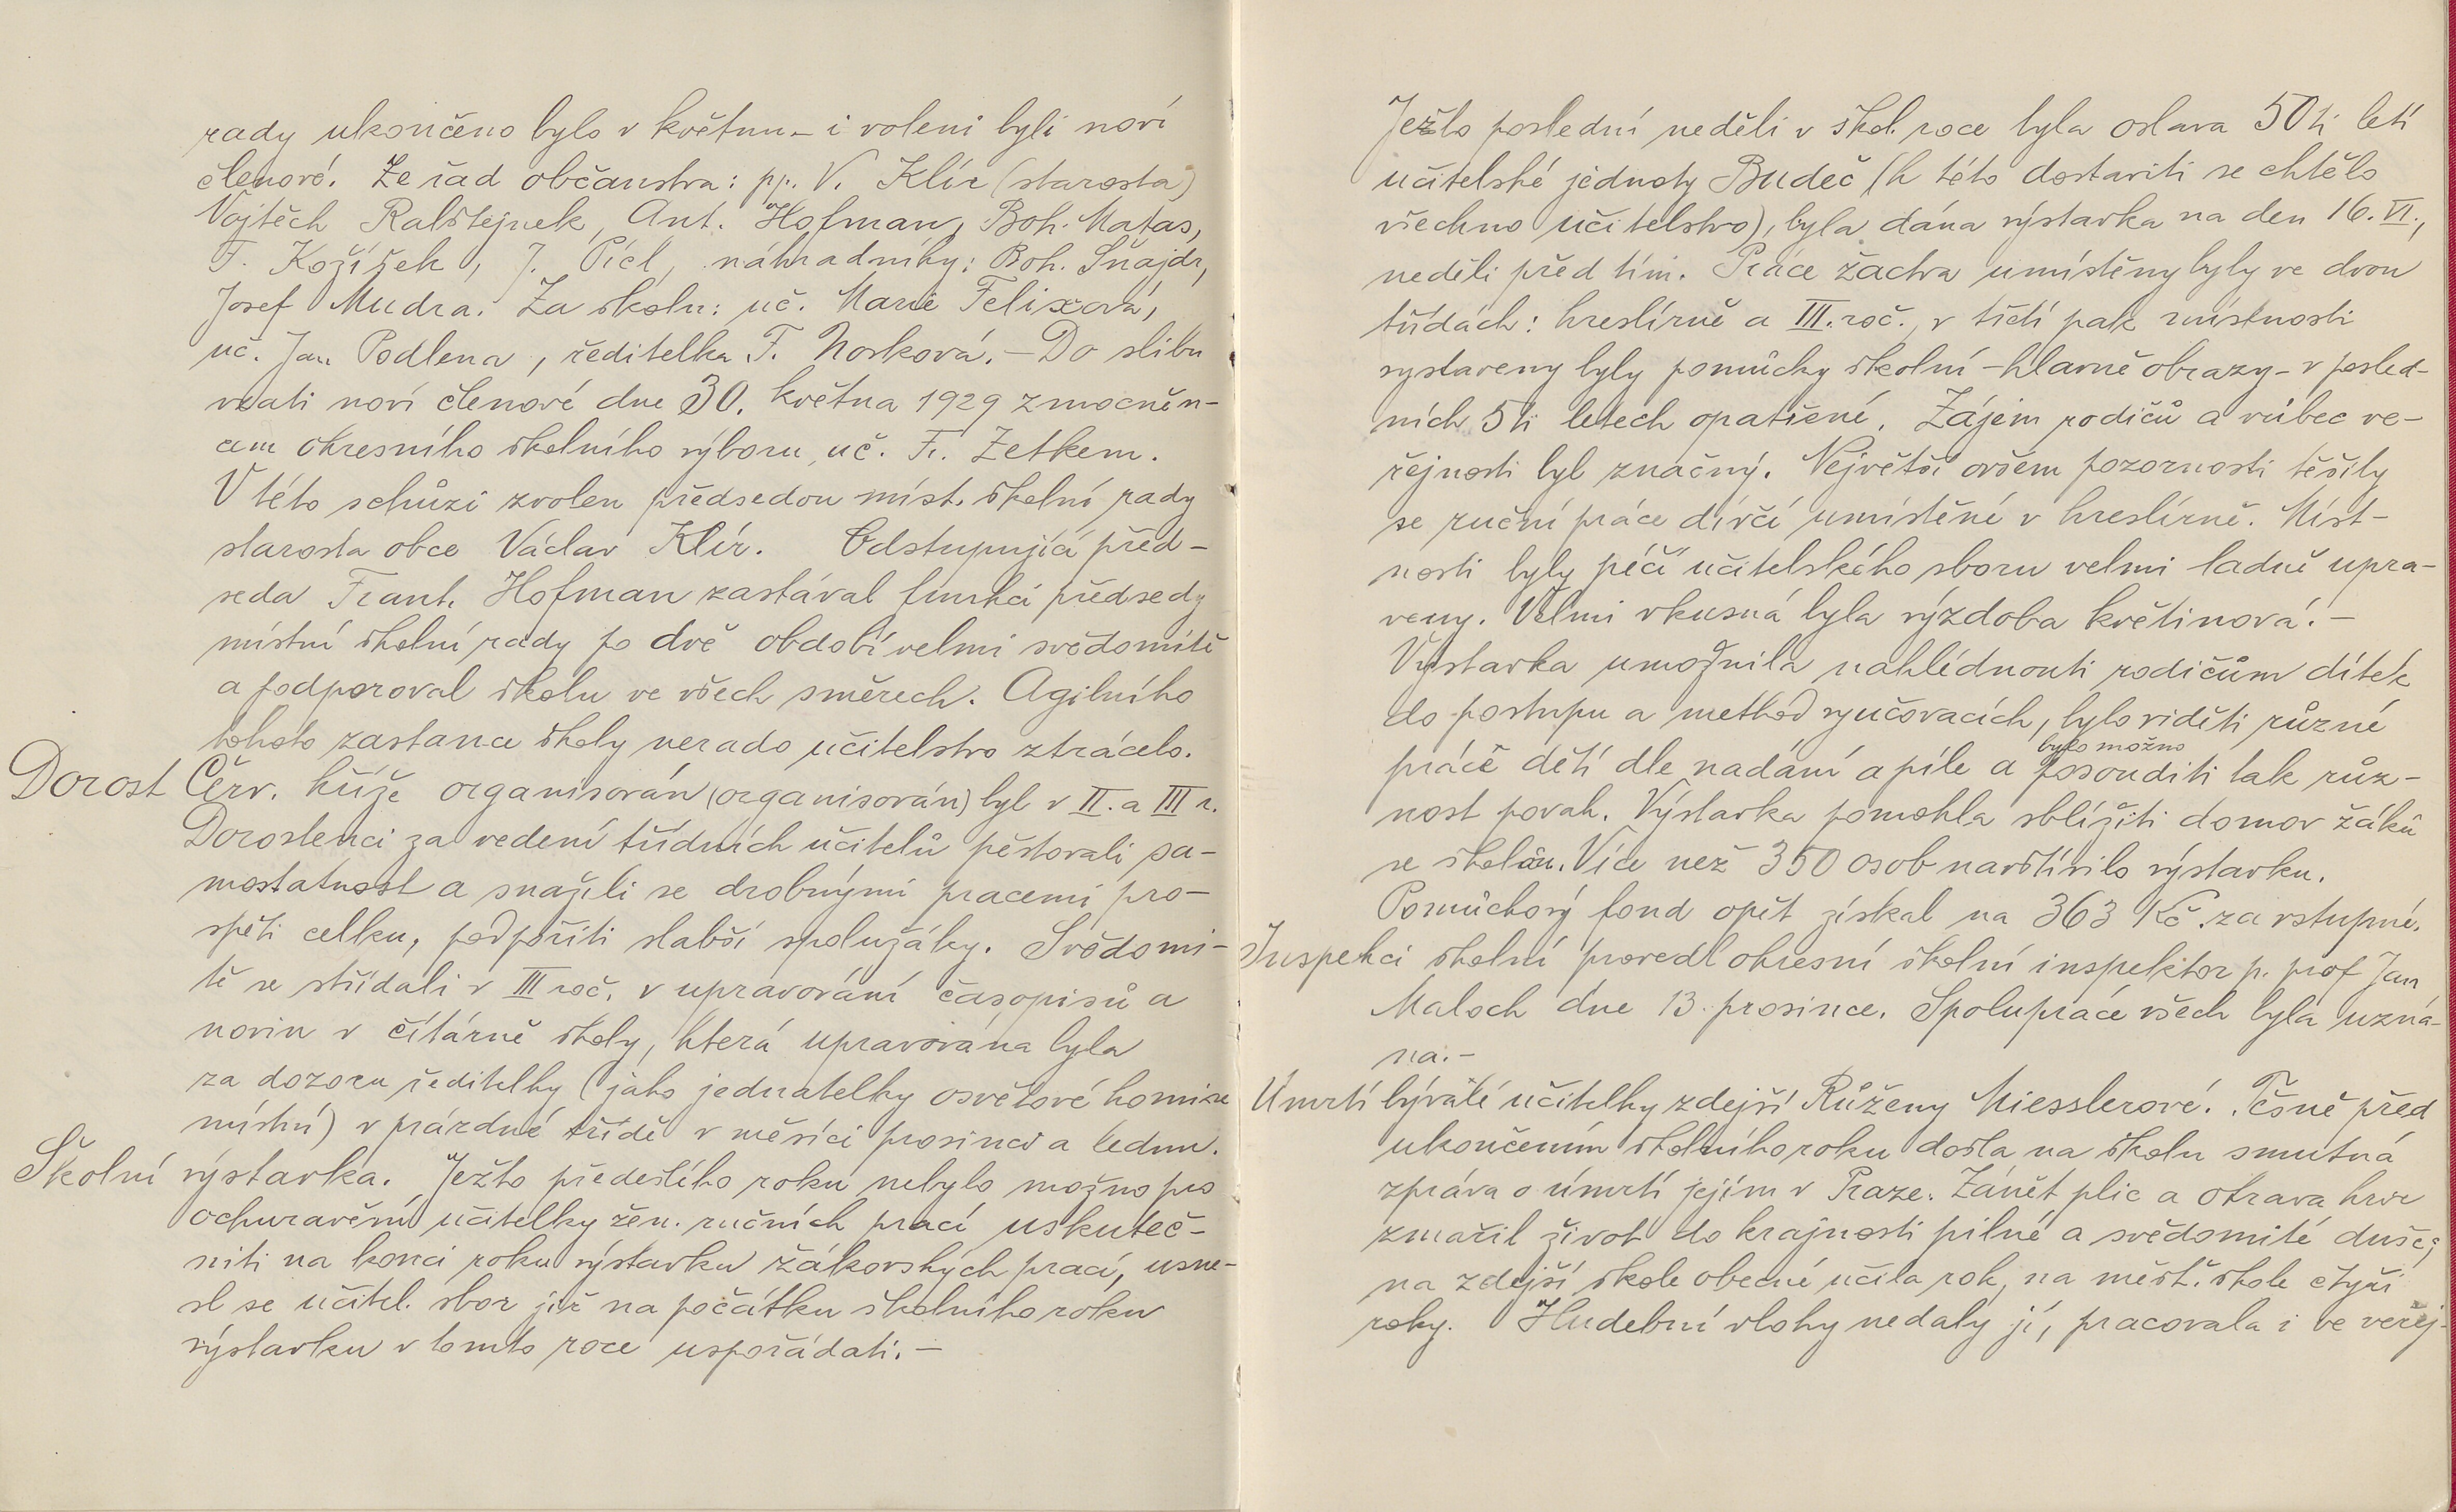 rady ukončeno bylo v květnu – i voleni byli noví
členové. Ze řad občanstva: pp. V. Klír (starosta)
Vojtěch Ralštejnek, Ant. Hofman, Boh. Matas,
F. Kožíšek, J. Pícl, náhradníky: Boh. Šnajdr,
Josef Mudra. Za školu: uč. Marie Felixová,
uč. Jan Podlena, ředitelka F. Nosková. – Do slibu
vzati noví členové dne 30. května 1929 zmocněn-
cem okresního školního výboru, uč. Fr. Zetkem.
V této schůzi zvolen předsedou míst. školní rady
starosta obce Václav Klír. Odstupující před-
seda Frant. Hofman zastával funkci předsedy
místní školní rady po dvě období velmi svědomitě
a podporoval školu ve všech směrech. Agilního
tohoto zastance školy nerado učitelstvo ztrácelo.
Dorost Červ. kříže organisován (organisován) byl v II. a III r.
Dorostenci za vedení třídních učitelů pěstovali sa-
mostatnost a snažili se drobnými pracemi pro-
spěti celku, podpořiti slabší spolužáky. Svědomi-
tě se střídali v III roč. v upravování časopisů a
novin v čítárně školy, která upravována byla
za dozoru ředitelky (jako jednatelky osvětové komise
místní) v prázdné třídě v měsíci prosinci a lednu.
Školní výstavka. Ježto předešlého roku nebylo možno pro
ochuravění učitelky žen. ručních prací uskuteč-
niti na konci roku výstavku žákovských prací, usne-
sl se učitel. sbor již na počátku školního roku
výstavku v tomto roce uspořádati. –
Ježto poslední neděli v škol. roce byla oslava 50ti letí
učitelské jednoty Budeč (k této dostaviti se chtělo
všechno učitelstvo), byla dána výstavka na den 16. VI.,
neděli před tím. Práce žactva umístěny byly ve dvou
třídách: kreslírně a III. roč., v třetí pak místnosti
vystaveny byly pomůcky školní – hlavně obrazy – v posled-
ních 5ti letech opatřené. Zájem rodičů a vůbec ve-
řejnosti byl značný. Největší ovšem pozornosti těšily
se ruční práce dívčí umístěné v kreslírně. Míst-
nosti byly péčí učitelského sboru velmi ladně upra-
veny. Velmi vkusná byla výzdoba květinová. –
Výstavka umožnila nahlédnouti rodičům dítek
do postupu a method vyučovacích, bylo viděti různé
bylo možno
práce dětí dle nadání a píle a posouditi tak růz-
nost povah. Výstavka pomohla sblížiti domov žáků
se školou. Více než 350 osob navštívilo výstavku.
Pomůckový fond opět získal na 363 Kč. za vstupné.
Inspekci školní provedl okresní školní inspektor p. prof Jan
Maloch dne 13. prosince. Spolupráce všech byla uzná-
na. –
Úmrtí bývalé učitelky zdejší Růženy Miesslerové. Těsně před
ukončením školního roku došla na školu smutná
zpráva o úmrtí jejím v Praze. Zánět plic a otrava krve
zmařil život do krajnosti pilné a svědomité duše;
na zdejší škole obecné učila rok, na měšť. škole čtyři
roky. Hudební vlohy nedaly jí, pracovala i ve veřej-